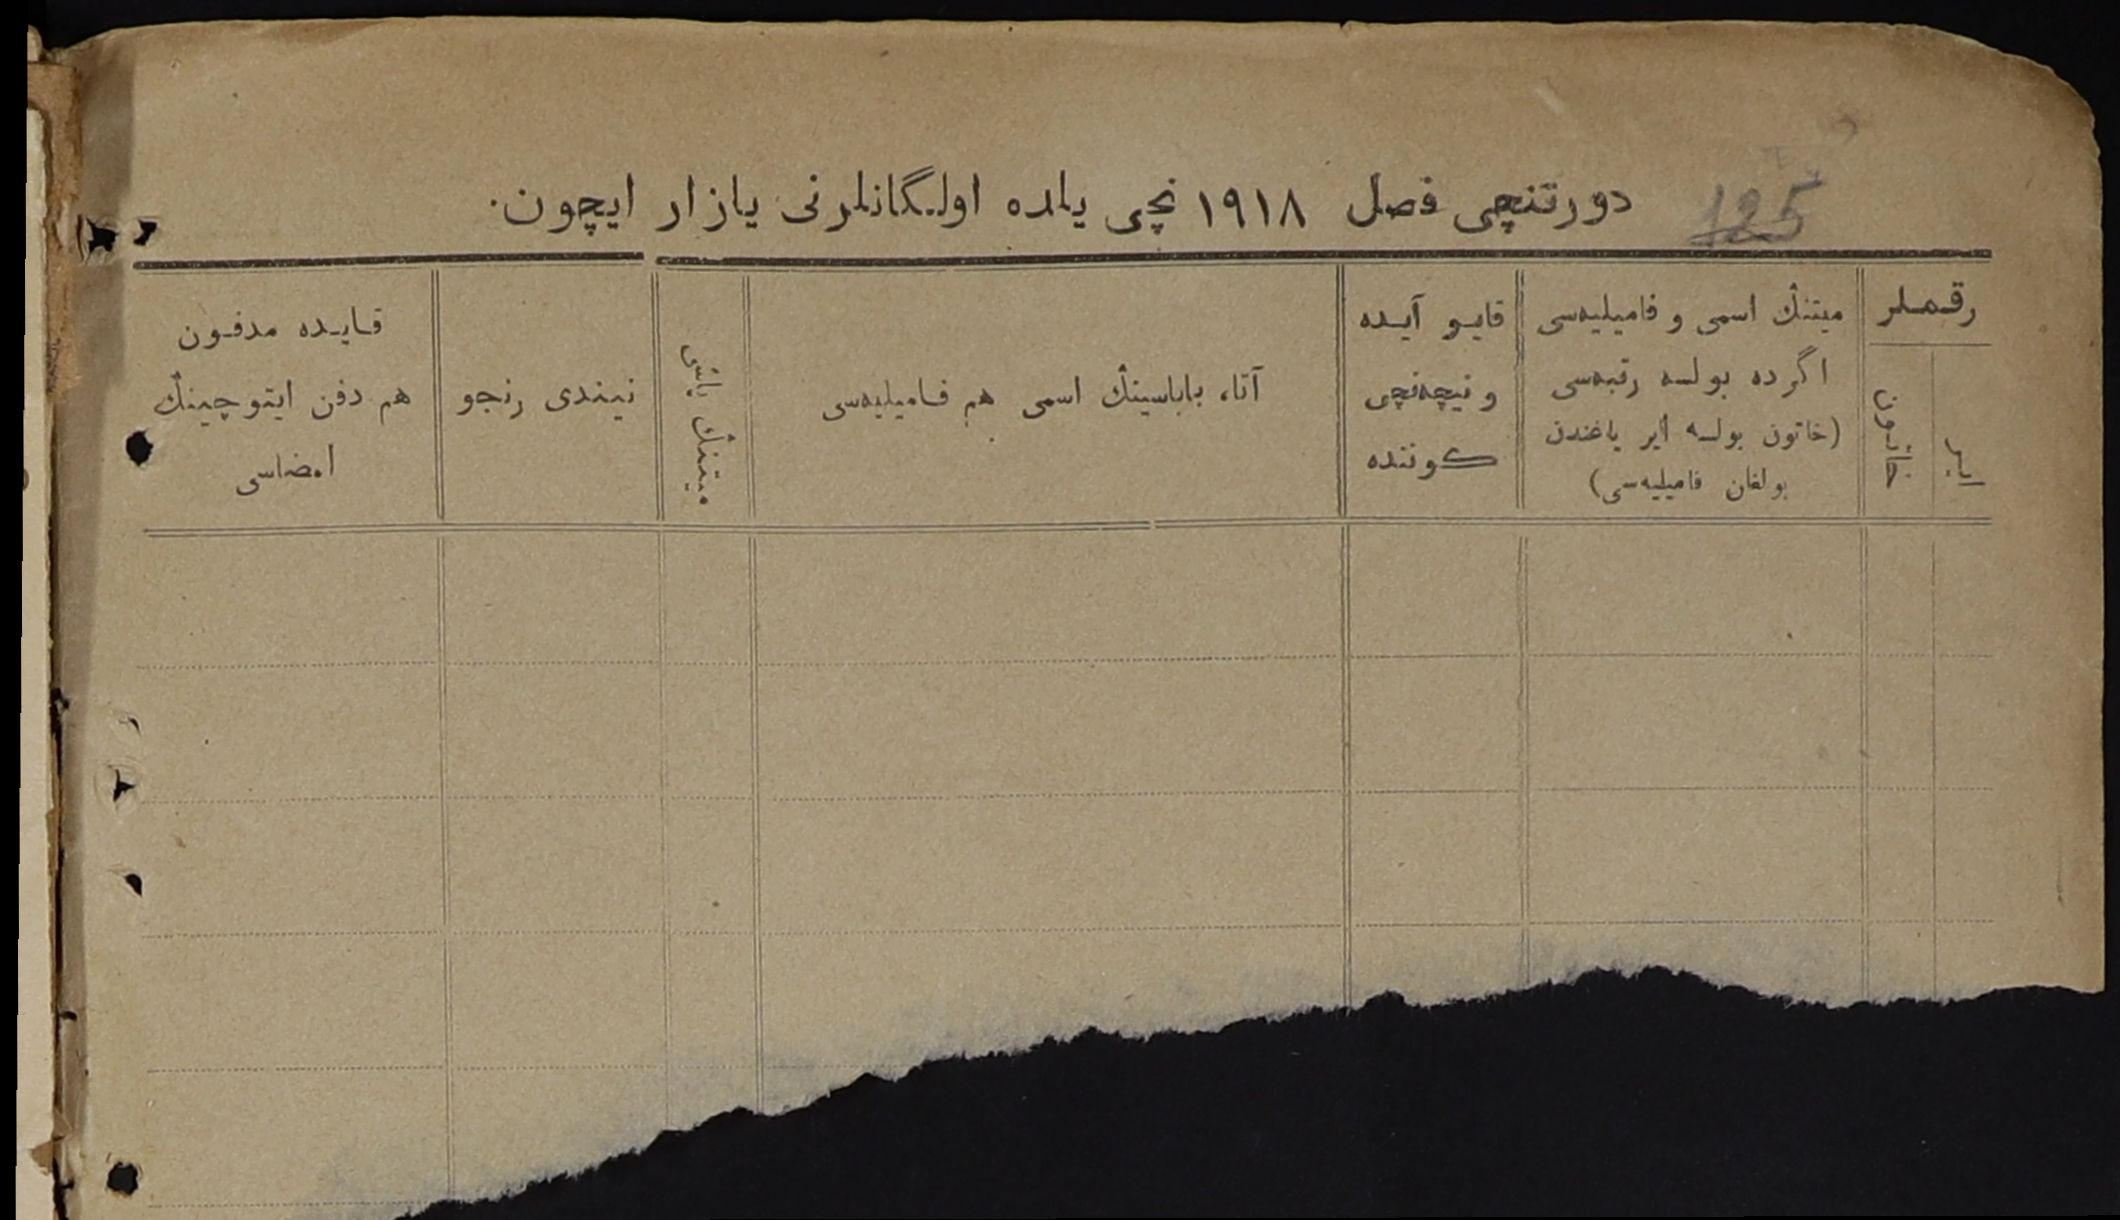 125
دورتنچی فصل ١٩١٨ نچی یلده اولگانلرنی یازار ایچون.
رقملر
ایر
خاتون
میتنڭ اسمی و فامیلیه‌سی
اگرده بولسه رتبه‌سی
(خاتون بولسه أیر یاغندن
بولغان فامیلیه‌سی)
قایو آیده
و نیچه‌نچی
کوننده
آتا، باباسینڭ اسمی هم فامیلیه‌سی
میتنڭ یاشی
نیندی رنجو
قایده مدفون
هم دفن ایتوچینڭ
امضاسی